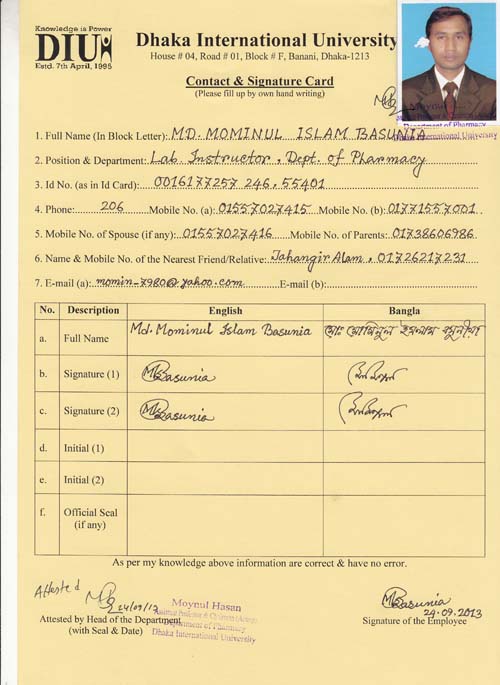 Knowledge is Power
DIU
Estd. 7th April, 1995
Dhaka International University
House # 04, Road # 01, Block # F, Banani, Dhaka-1213
Contact & Signature Card
(Please fill up by own hand writing)
Department of Pharmacy
Dhaka International University
1. Full Name (In Block Letter): MD. MOMINUL ISLAM BASUNIA
2. Position & Department: Lab. Instructor, Dept. of Pharmacy
3. Id No. (as in Id Card): 0016177257 246, 55401
4. Phone: 206 Mobile No. (a): 01557027415 Mobile No. (b): 01771557001
5. Mobile No. of Spouse (if any): 01557027416 Mobile No. of Parents: 01738606986
6. Name & Mobile No. of the Nearest Friend/Relative: Jahangir Alam, 01726217231
7. E-mail (a): momin_7980@yahoo.com E-mail (b):
No. Description English Bangla
a. Full Name Md. Mominul Islam Basunia মোঃ মোমিনুল ইসলাম বসুনীয়া
b. Signature (1) Basunia
c. Signature (2) Basunia
d. Initial (1)
e. Initial (2)
f. Official Seal
(if any)
As per my knowledge above information are correct & have no error.
Attested
24/09/13
Moynul Hasan
Department of Pharmacy
Dhaka International University
Attested by Head of the Department
(with Seal & Date)
Basunia
24.09.2013
Signature of the Employee